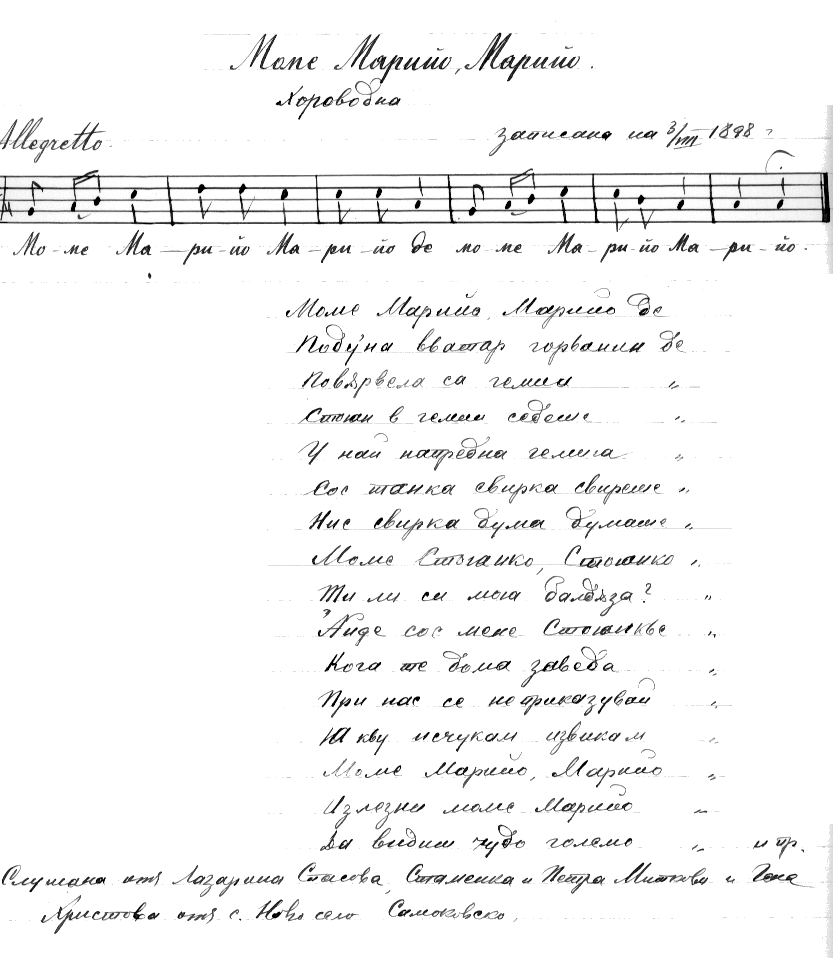 Моме Марийо, Марийо.
Хороводна
Allegretto. записана на 3/VIII 1898
Мо-ме Ма-ри-йо Ма-ри-йо де мо-ме Ма-ри-йо Ма-ри-йо.
Моме Марийо, Марийо де
Подуна вватар горванин де
Повървела са гемии „
Стоян в гемии седеше „
У най напредна гемига „
Сос танка свирка свиреше „
Низ свирка дума думаше „
Моме Стоганко, Стоянко „
Ти ли си моя балдъза? „
Айде сос мене Стоянкье „
Кога те дома заведа „
При нас се неприказувай „
Я кву исчукам извикам „
Моме Марийо, Марийо „
Излезни моме Марийо „
Да видиш чудо големо „ и пр.
Слушана отъ Лазарина Спасова, Стаменка и Петра Миткови и
Христова отъ с. Ново село Самоковско.